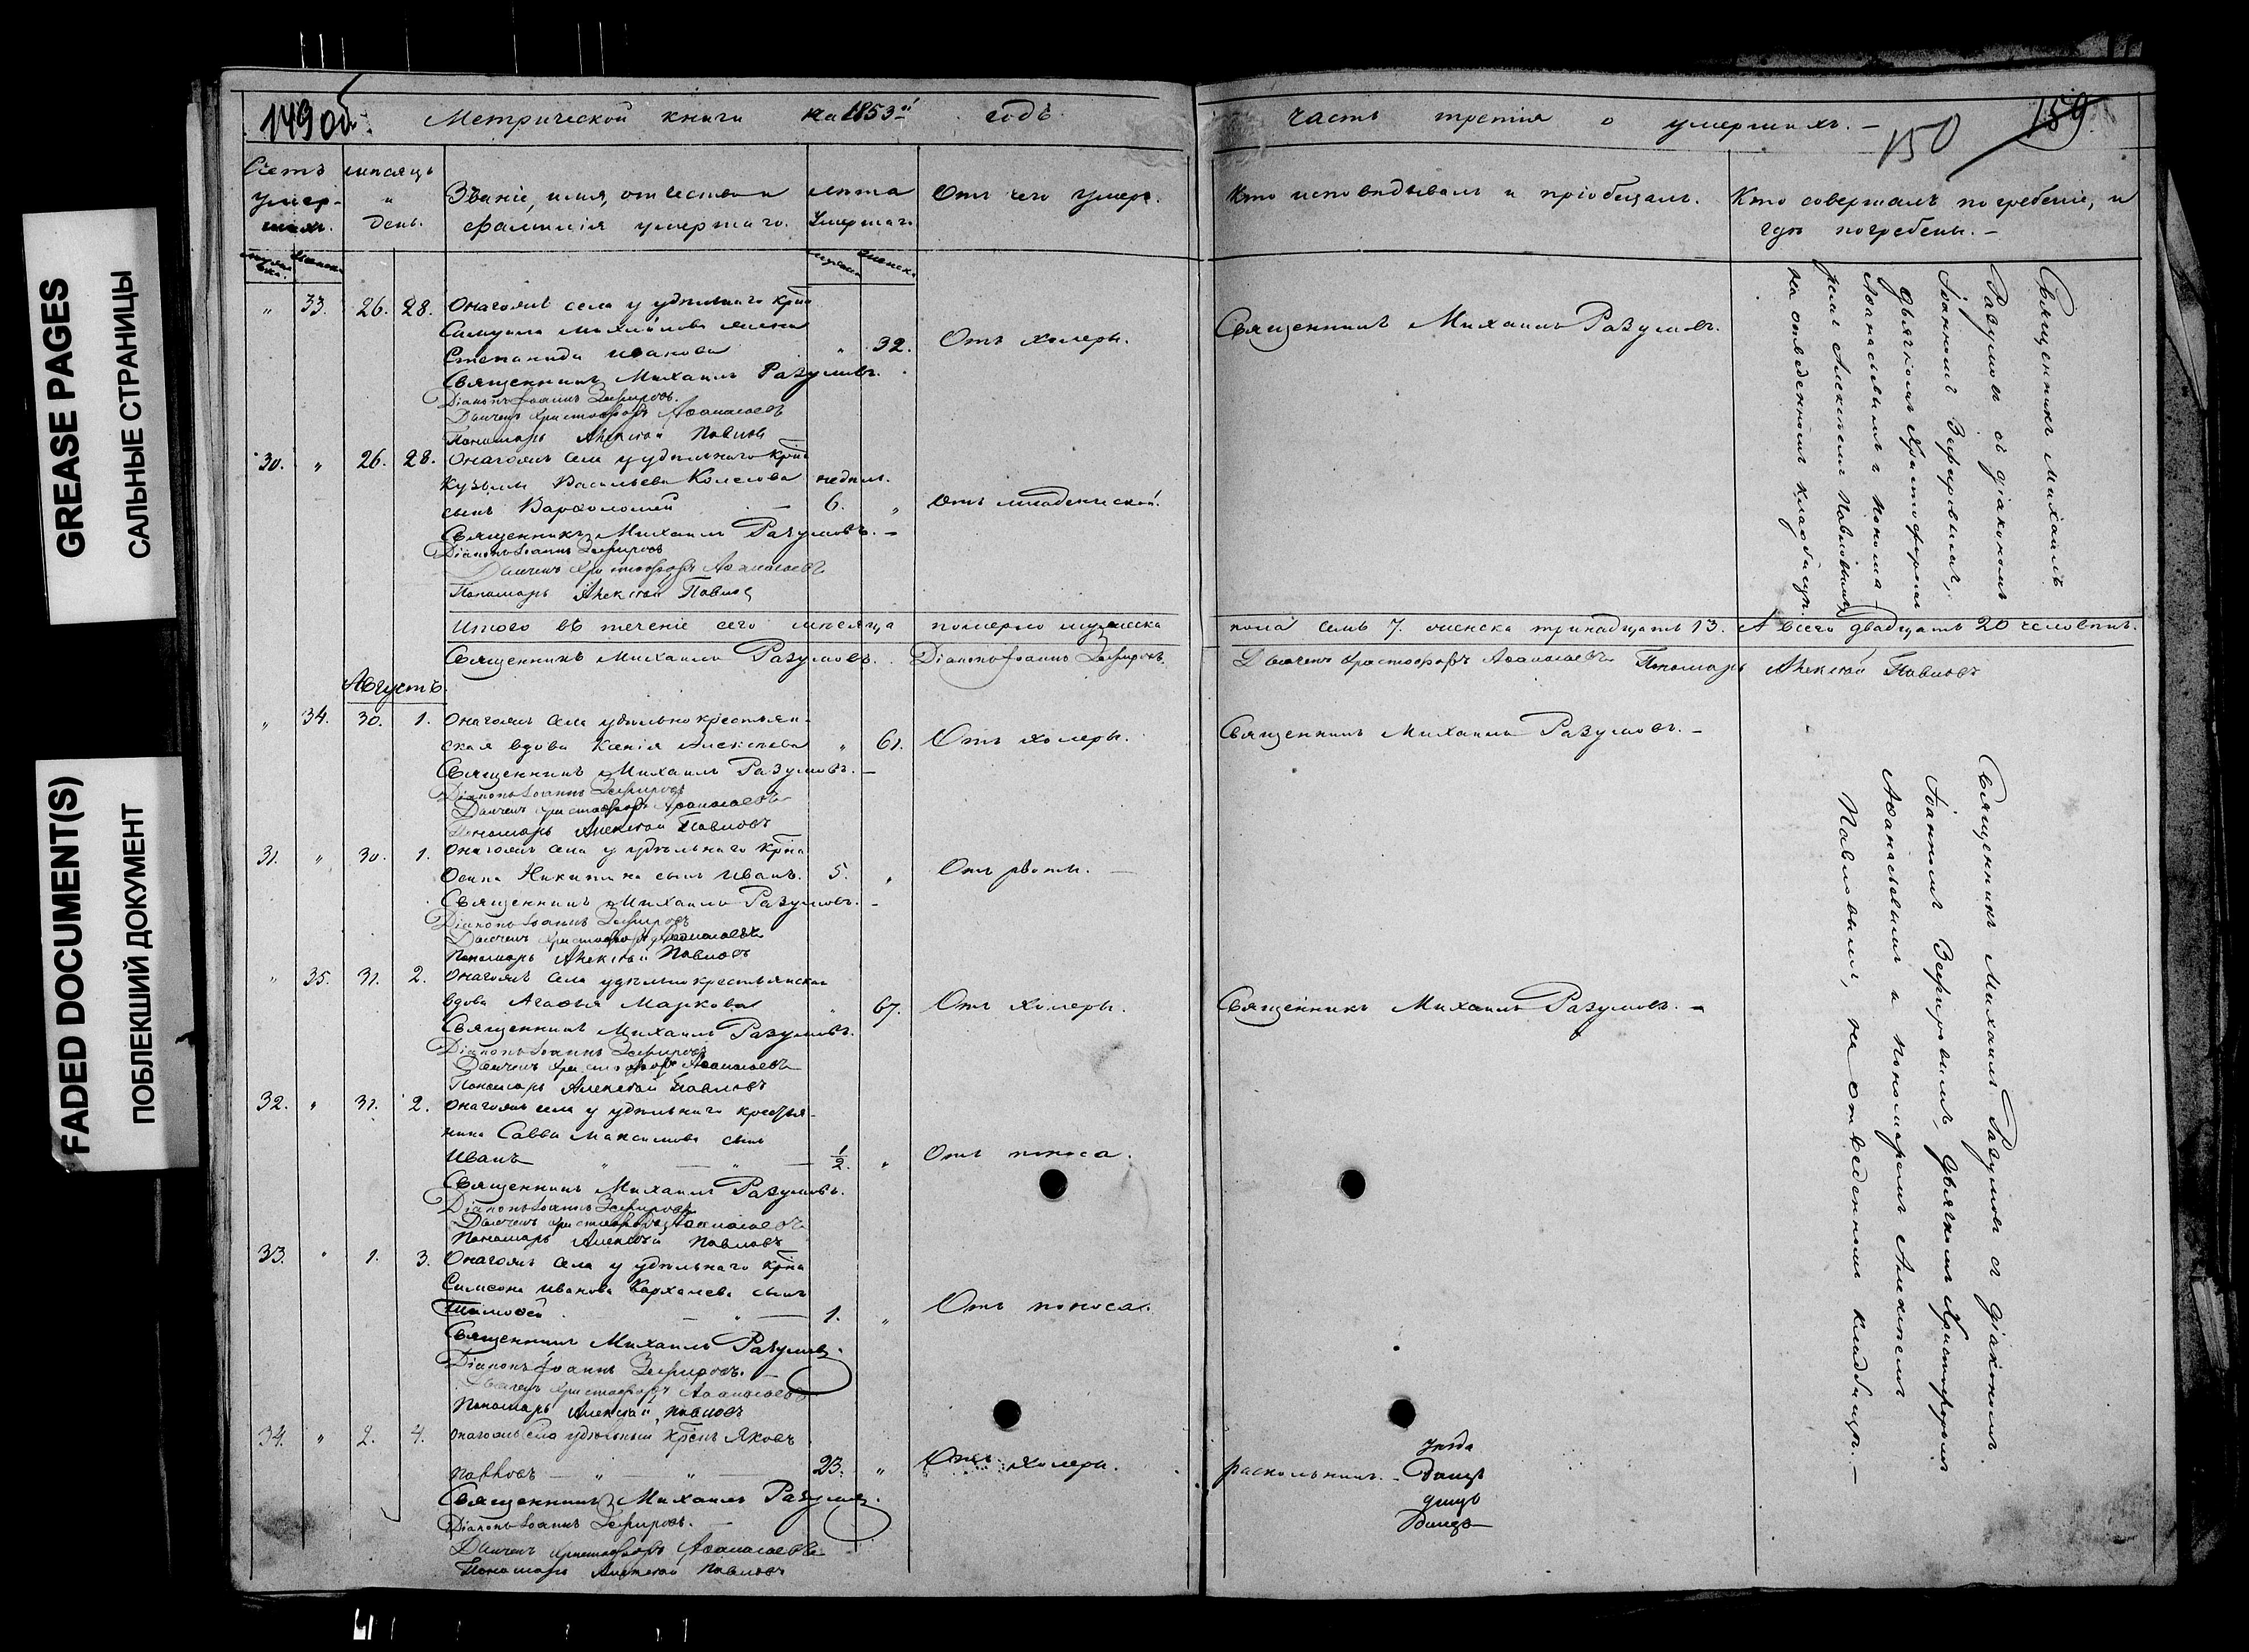 GREASE PAGES
САЛЬНЫЕ СТРАНИЦЫ
FADED DOCUMENT(S)
ПОБЛЕКШИЙ ДОКУМЕНТ
149 об.
Метрической книги на 1853й годъ
Счетъ умершихъ.
мѣсяцъ и день.
Званіе, имя, отчество и фамилія умершаго.
лѣта умершаго
Отъ чего умеръ.
мужеска
женска
мужеска
женска
" 33. 26. 28. Онагожъ села у удѣльнаго крна
Самуила Михайлова жена
Степанида Иванова " 32. Отъ холеры.
Священникъ Михаилъ Разумовъ.
Діаконъ Іоаннъ Зефировъ.
Дьячекъ Христофоръ Аѳанасьевъ
Пономарь Алексѣй Павловъ
30. " 26. 28. Онагожъ села у удѣльнаго крна
Кузьмы Васильева Колесова недѣль.
сынъ Варѳоломей — 6. " Отъ младенческой.
Священникъ Михаилъ Разумовъ. —
Діаконъ Іоаннъ Зефировъ
Дьячекъ Христофоръ Аѳанасьевъ
Пономарь Алексѣй Павловъ
Итого въ теченіе сего мѣсяца померло мужеска
Священникъ Михаилъ Разумовъ. Діаконъ Іоаннъ Зефировъ.
Августъ.
" 34. 30. 1. Онагожъ села удѣльнокрестьян-
ская вдова Ксенія Алексѣева " 61. Отъ холеры.
Священникъ Михаилъ Разумовъ. —
Діаконъ Іоаннъ Зефировъ
Дьячекъ Христофоръ Аѳанасьевъ
Пономарь Алексѣй Павловъ
31. " 30. 1. Онагожъ села у удѣльнаго крна
Осипа Никитина сынъ Иванъ. 5. " Отъ рвоты. —
Священникъ Михаилъ Разумовъ. —
Діаконъ Іоаннъ Зефировъ
Дьячекъ Христофоръ Аѳанасьевъ
Пономарь Алексѣй Павловъ
" 35. 31. 2. Онагожъ села удѣльнокрестьянская
вдова Агаѳья Маркова " 67. Отъ холеры.
Священникъ Михаилъ Разумовъ.
Діаконъ Іоаннъ Зефировъ
Дьячекъ Христофоръ Аѳанасьевъ
Пономарь Алексѣй Павловъ
32. " 31. 2. Онагожъ села у удѣльнаго крестья-
нина Саввы Максимова сынъ
Иванъ — " — 1/2. " Отъ поноса.
Священникъ Михаилъ Разумовъ.
Діаконъ Іоаннъ Зефировъ
Дьячекъ Христофоръ Аѳанасьевъ
Пономарь Алексѣй Павловъ
33. " 1. 3. Онагожъ села у удѣльнаго крна
Симеона Иванова сынъ
Тимоѳей — " — 1. " Отъ поноса.
Священникъ Михаилъ Разумовъ.
Діаконъ Іоаннъ Зефировъ. —
Дьячекъ Христофоръ Аѳанасьевъ
Пономарь Алексѣй Павловъ
34. " 2. 4. Онагожъ села удѣльный крснъ Яковъ
Павловъ — " — " — 23. " Отъ холеры.
Священникъ Михаилъ Разумовъ.
Діаконъ Іоаннъ Зефировъ. —
Дьячекъ Христофоръ Аѳанасьевъ
Пономарь Алексѣй Павловъ
часть третія о умершихъ. —
150
159
Кто исповѣдывалъ и пріобщалъ.
Кто совершалъ погребеніе, и
гдѣ погребены. —
Священникъ Михаилъ Разумовъ.
Священникъ Михаилъ
Разумовъ съ діакономъ
Іоанномъ Зефировымъ,
дьячкомъ Христофоромъ
Аѳанасьевымъ и понома-
ремъ Алексѣемъ Павловымъ
на отведенномъ кладбищѣ.
пола семь 7. женска тринадцать 13. А всего двадцать 20 человѣкъ.
Дьячекъ Христофоръ Аѳанасьевъ Пономарь Алексѣй Павловъ
Священникъ Михаилъ Разумовъ. —
Священникъ Михаилъ Разумовъ. —
раскольникъ.
Священникъ Михаилъ Разумовъ съ діакономъ
Іоанномъ Зефировымъ, дьячкомъ Христофоромъ
Аѳанасьевымъ и пономаремъ Алексѣемъ
Павловымъ, на отведенномъ кладбищѣ. —